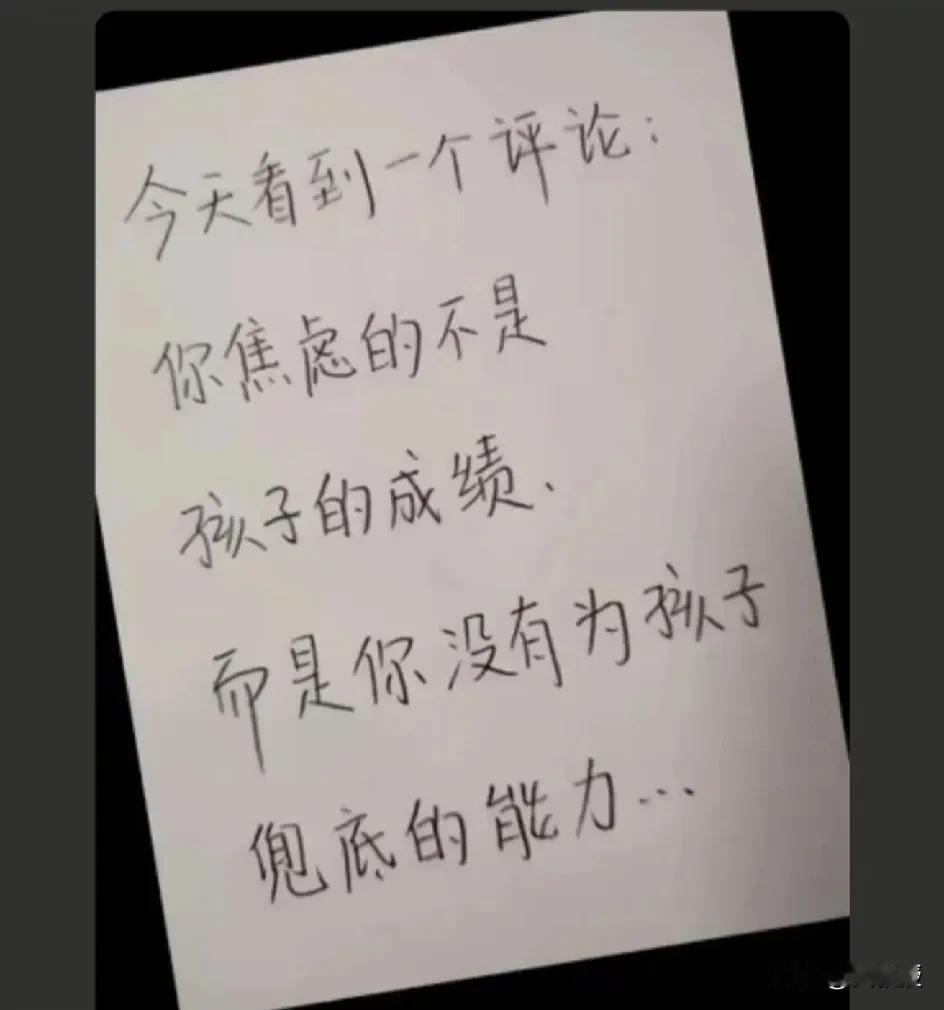 今天看到一个评论：
你焦虑的不是
孩子的成绩、
而是你没有为孩子
兜底的能力…